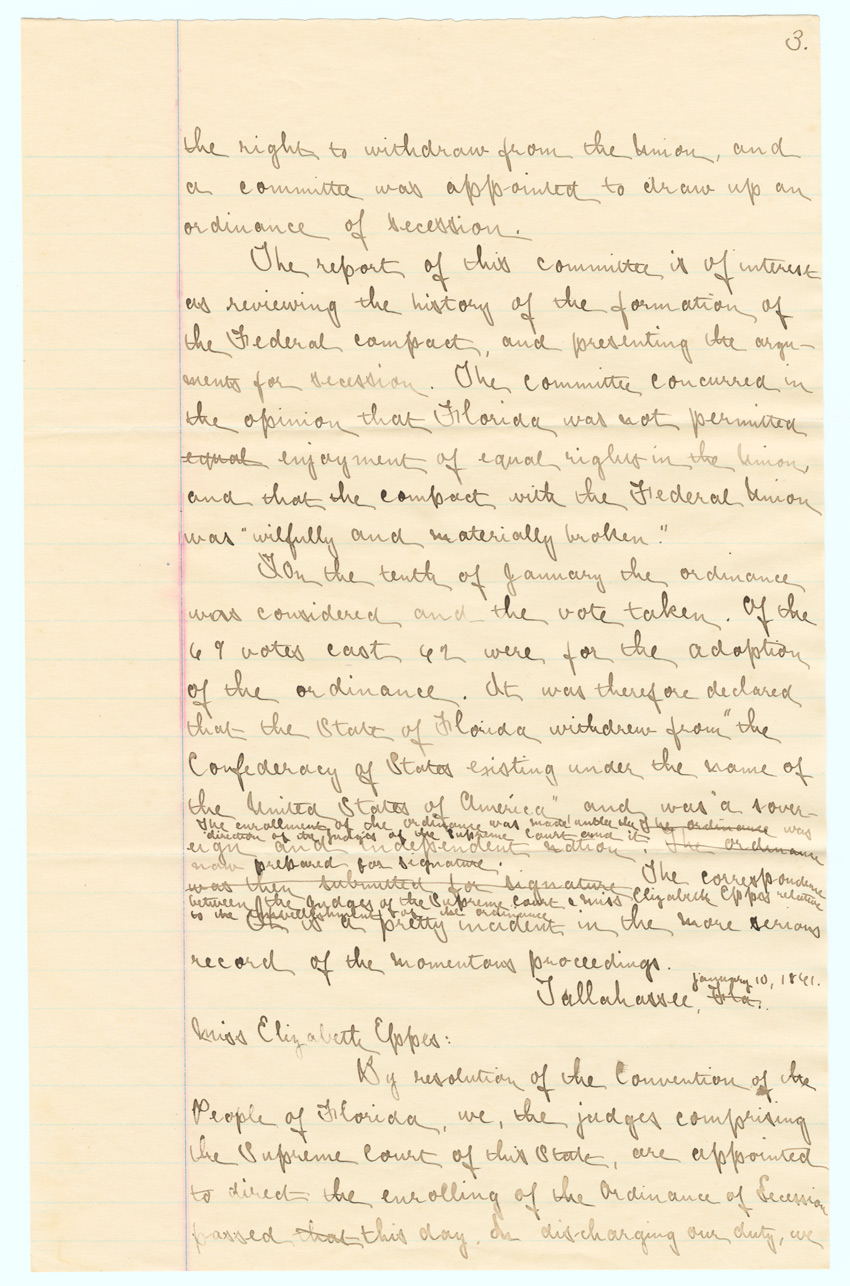 3.
the right to withdraw from the Union, and
a committee was appointed to draw up an
ordinance of secession.
The report of this committee is of interest
as reviewing the history of the formation of
the Federal compact, and presenting the argu-
ments for secession. The committee concurred in
the opinion that Florida was not permitted
equal enjoyment of equal rights in the Union,
and that the compact with the Federal Union
was "wilfully and materially broken."
On the tenth of January the ordinance
was considered and the vote taken. Of the
69 votes cast 62 were for the adoption
of the ordinance. It was therefore declared
that the State of Florida withdrew from "the
Confederacy of States existing under the name of
the United States of America" and was "a sover-
The enrollment of the ordinance was made under the The ordinance was
direction of the judges of the Supreme Court and it
eign and independent nation". The ordinance
now prepared for signature.
was then submitted for signature The correspondence
between the Judges of the Supreme Court & Miss Elizabeth Eppes relative
to the embellishment of the ordinance
It is a pretty incident in the more serious
record of the momentous proceedings.
January 10, 1861.
Tallahassee, Fla.
Miss Elizabeth Eppes:
By resolution of the Convention of the
People of Florida, we, the judges comprising
the Supreme Court of this State, are appointed
to direct the enrolling of the Ordinance of Secession
passed that this day. In discharging our duty, we